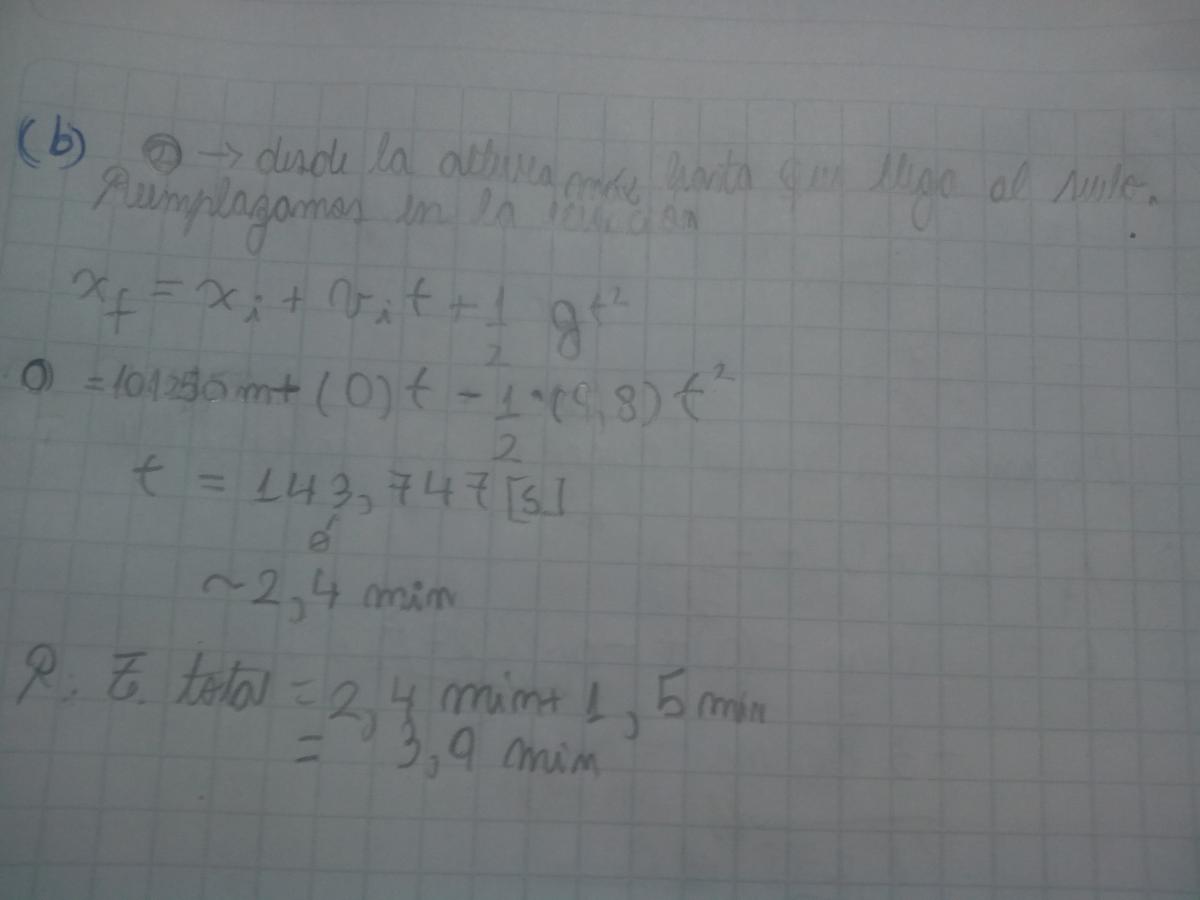 (b) ② → desde la altura máx hasta que llega al suelo.
Reemplazamos en la ecuación
x_f = x_i + v_i t + 1/2 g t²
0 = 101250 m + (0) t - 1/2 • (9,8) t²
t = 143,747 [s]
ó
~2,4 min
R: t. total = 2,4 min + 1,5 min
= 3,9 min